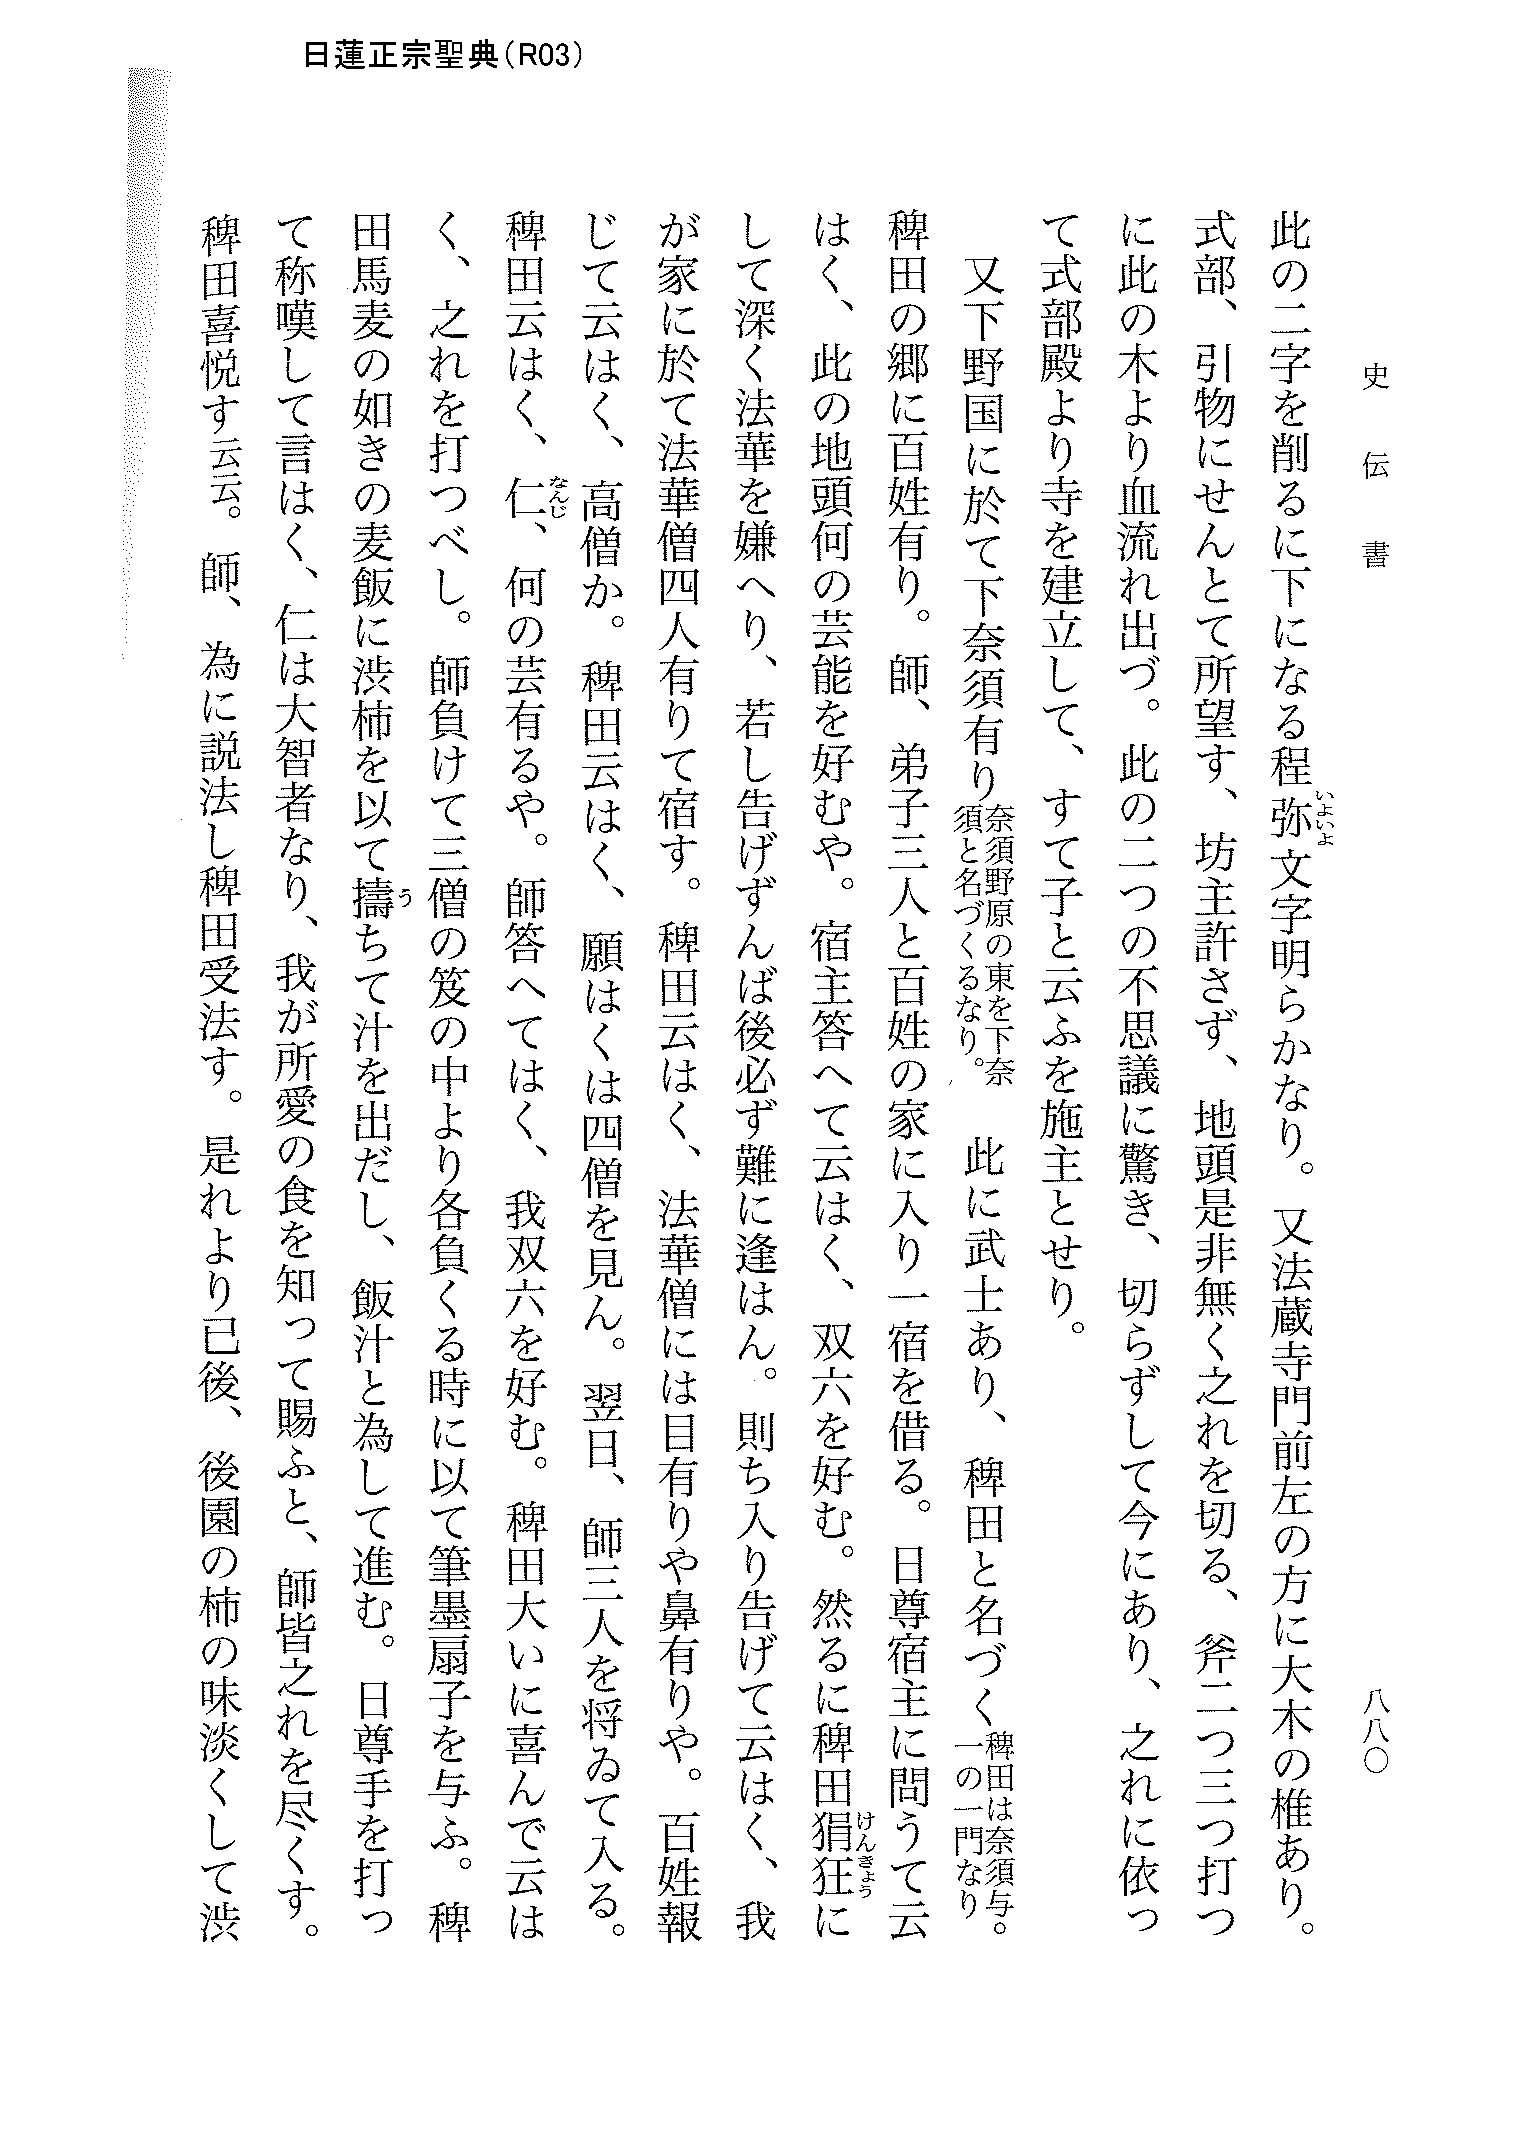 日蓮正宗聖典（R03）
史伝書
八八〇
此の二字を削るに下になる程弥文字明らかなり。又法蔵寺門前左の方に大木の椎あり。
式部、引物にせんとて所望す、坊主許さず、地頭是非無く之れを切る、斧二つ三つ打つ
に此の木より血流れ出づ。此の二つの不思議に驚き、切らずして今にあり、之れに依っ
て式部殿より寺を建立して、すて子と云ふを施主とせり。
又下野国に於て下奈須有り奈須野原の東を下奈須と名づくるなり。此に武士あり、稗田と名づく稗田は奈須与一の一門なり。
稗田の郷に百姓有り。師、弟子三人と百姓の家に入り一宿を借る。日尊宿主に問うて云
はく、此の地頭何の芸能を好むや。宿主答へて云はく、双六を好む。然るに稗田狷狂に
して深く法華を嫌へり、若し告げずんば後必ず難に逢はん。則ち入り告げて云はく、我
が家に於て法華僧四人有りて宿す。稗田云はく、法華僧には目有りや鼻有りや。百姓報
じて云はく、高僧か。稗田云はく、願はくは四僧を見ん。翌日、師三人を将ゐて入る。
稗田云はく、仁、何の芸有るや。師答へてはく、我双六を好む。稗田大いに喜んで云は
く、之れを打つべし。師負けて三僧の笈の中より各負くる時に以て筆墨扇子を与ふ。稗
田馬麦の如きの麦飯に渋柿を以て擣ちて汁を出だし、飯汁と為して進む。日尊手を打っ
て称嘆して言はく、仁は大智者なり、我が所愛の食を知って賜ふと、師皆之れを尽くす。
稗田喜悦す云云。師、為に説法し稗田受法す。是れより已後、後園の柿の味淡くして渋